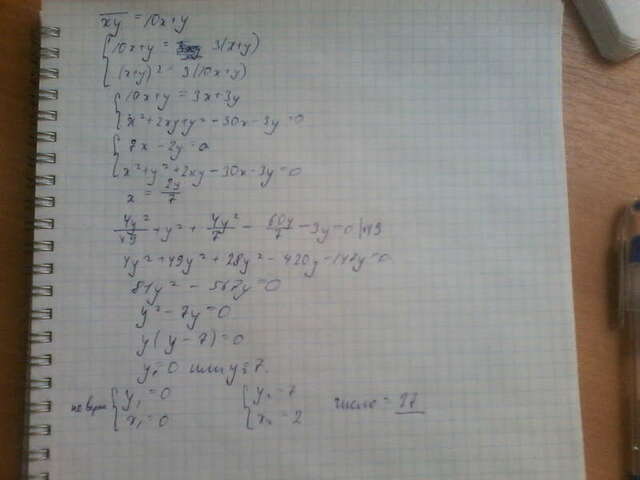 xy = 10x+y
{ 10x+y = 3(x+y)
(x+y)² = 3(10x+y)
{ 10x+y = 3x+3y
x²+2xy+y² - 30x - 3y = 0
{ 7x - 2y = 0
x²+y²+2xy - 30x - 3y = 0
x = 2y/7
4y²/49 + y² + 4y²/7 - 60y/7 - 3y = 0 |·49
4y² + 49y² + 28y² - 420y - 147y = 0
81y² - 567y = 0
y² - 7y = 0
y(y - 7) = 0
y = 0 или y = 7.
не верно { y₁ = 0 { y₂ = 7 число = 27
x₁ = 0 x₂ = 2